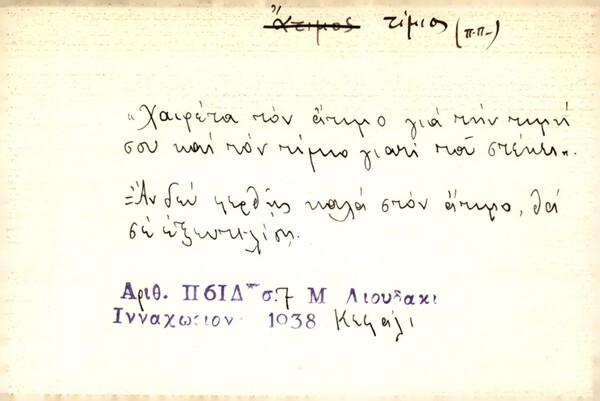 Ἄτιμος τίμιος (π.π.-)
«Χαιρέτα τὸν ἄτιμο γιὰ τὴν τιμή
σου καὶ τὸν τίμιο γιατί τοῦ στέκει».
=Ἂν δὲν φερθῇς καλὰ στὸν ἄτιμο, θὰ
σὲ ἐξευτελίσῃ.
Αριθ. Π61Δ σ.7 Μ Λιουδακι
Ινναχωριον 1938 Κεφάλι